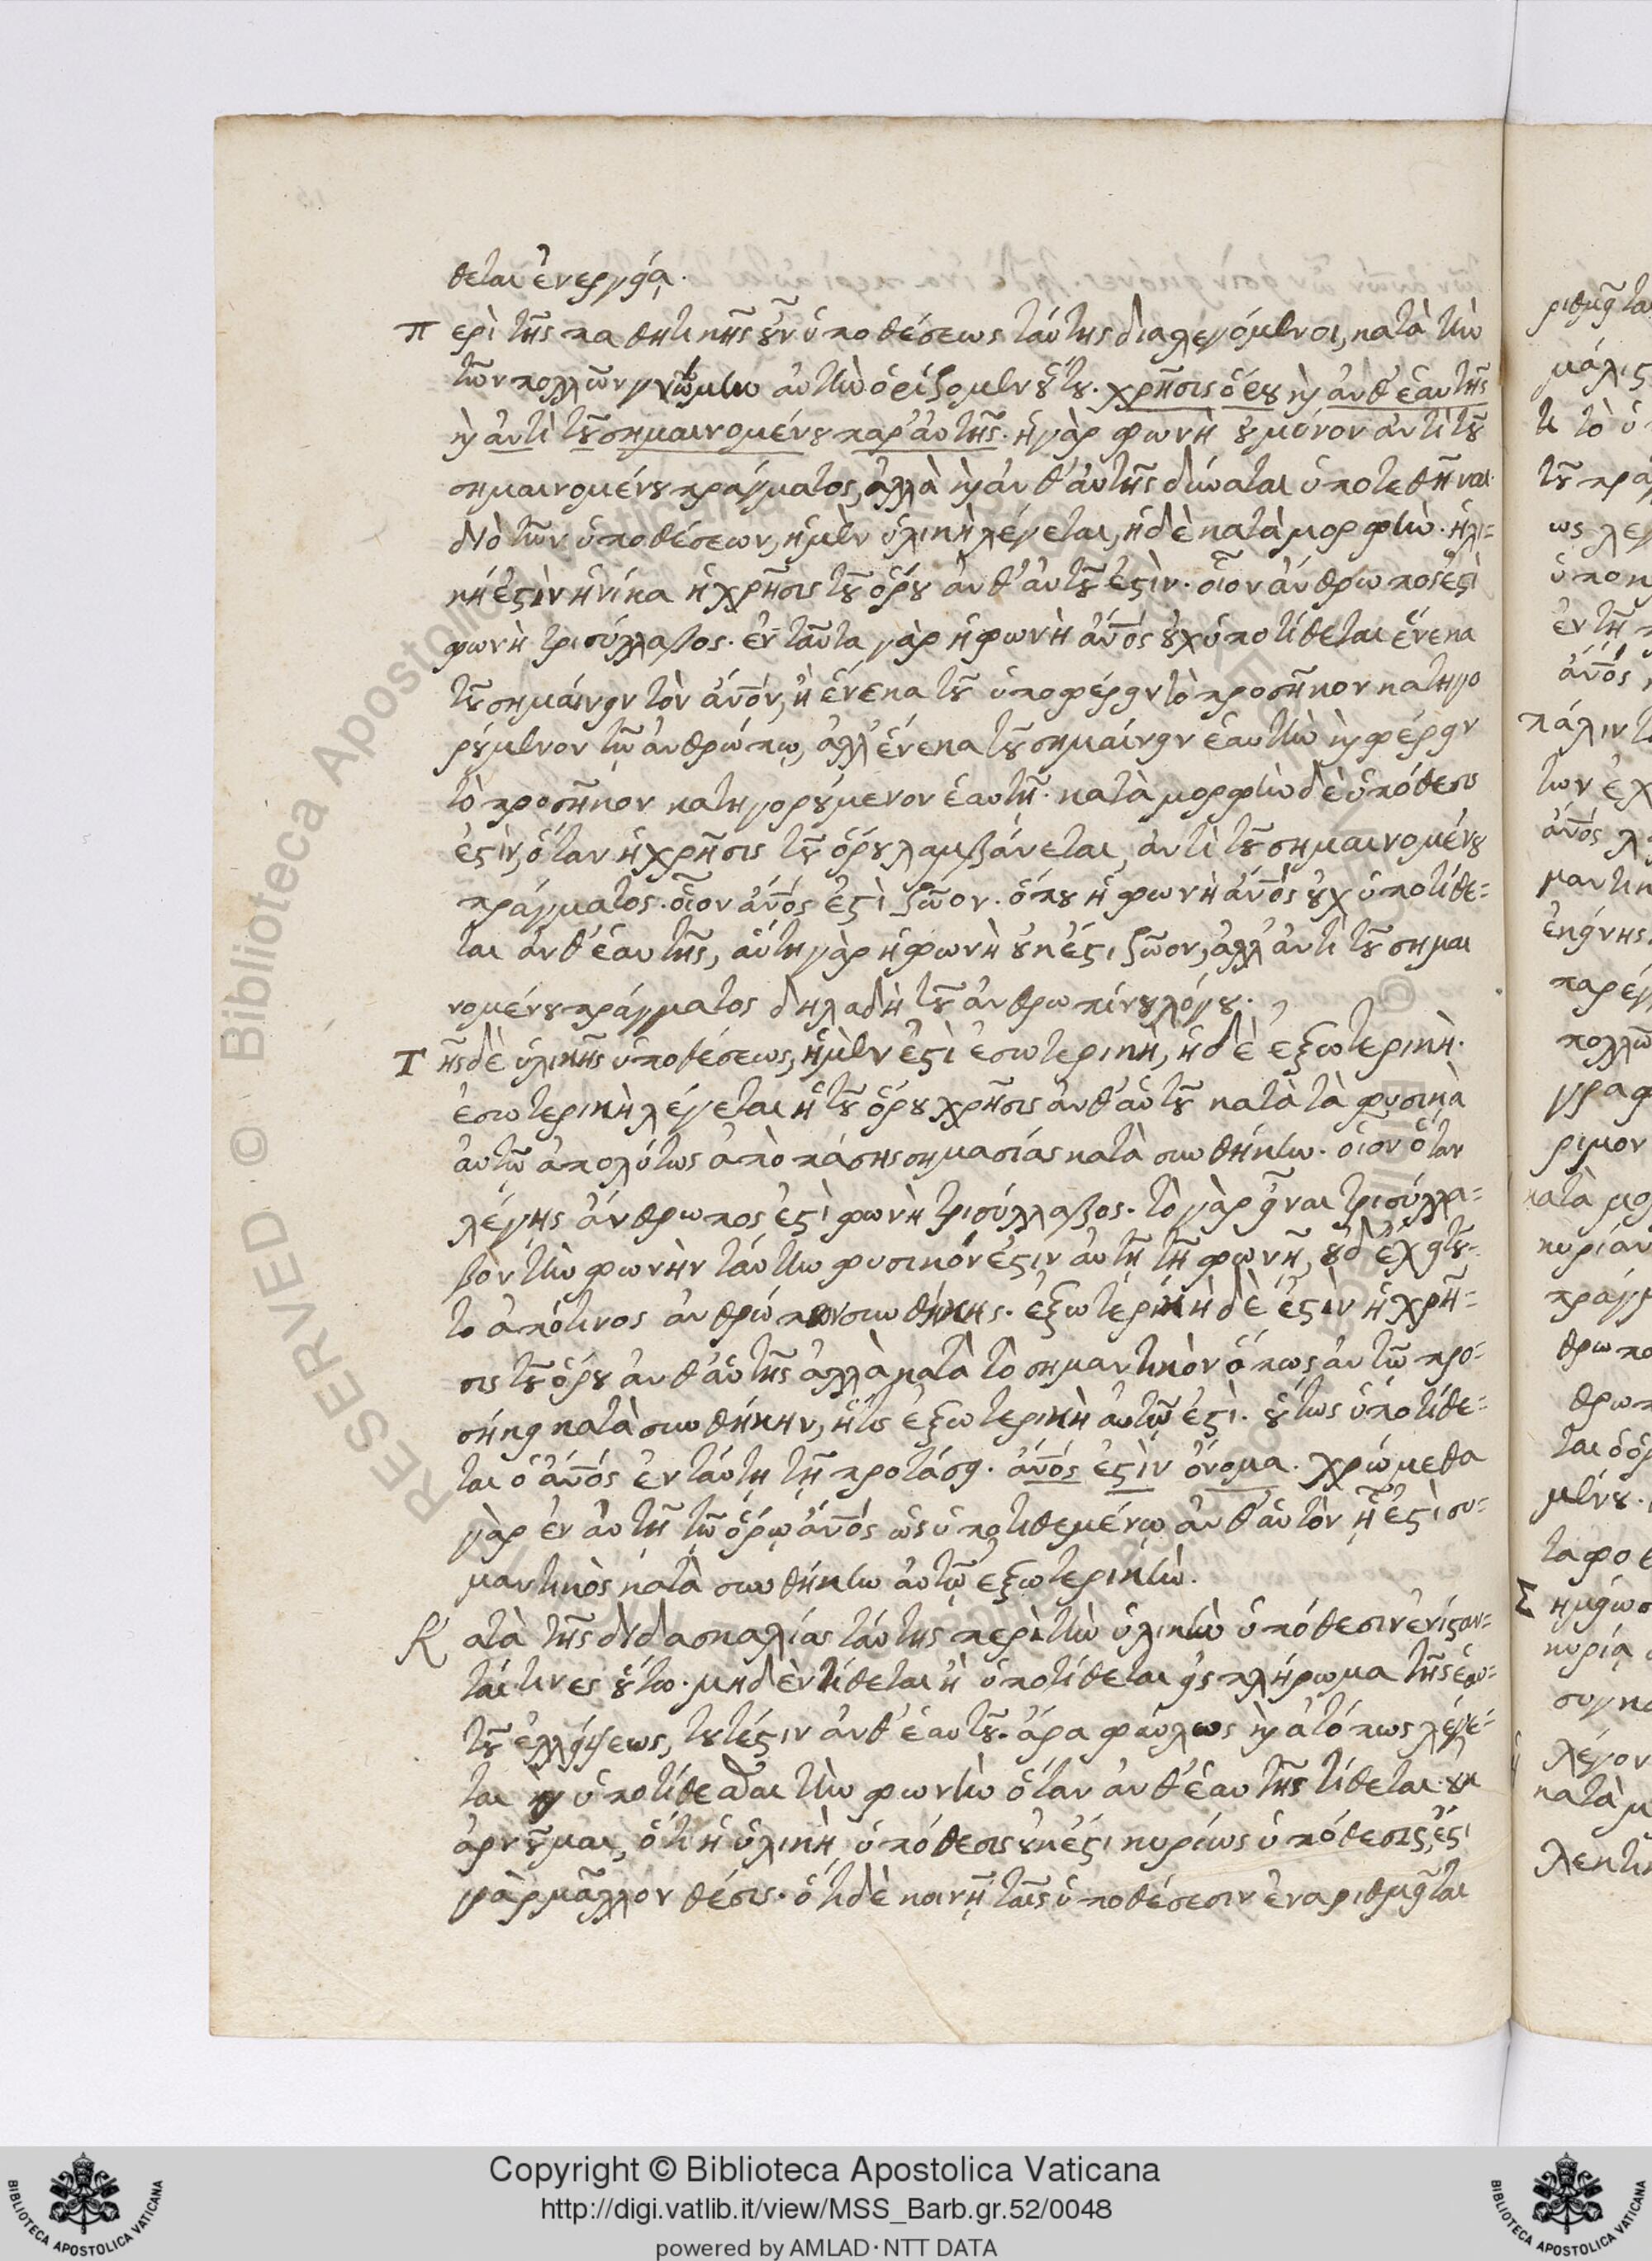 θεται ἐνεργείᾳ.
Περὶ τῆς παθητικῆς οὖν ὑποθέσεως ταύτης διαλεγόμενοι, κατὰ τὴν
τῶν πολλῶν γνώμην αὐτὴν ὁρίζομεν οὕτω. χρῆσις ὅρου καὶ ἀνθ' ἑαυτῆς
καὶ ἀντὶ τοῦ σημαινομένου παρ' αὐτῆς. ἡ γὰρ φωνὴ οὐ μόνον ἀντὶ τοῦ
σημαινομένου πράγματος, ἀλλὰ καὶ ἀνθ' αὑτῆς δύναται ὑποτεθῆναι.
διὸ τῶν ὑποθέσεων, ἡ μὲν ὑλικὴ λέγεται, ἡ δὲ κατὰ μορφήν. ὑλι=
κή ἐστιν ἡνίκα ἡ χρῆσις τοῦ ὅρου ἀνθ' αὑτοῦ ἐστίν. οἷον ἄνθρωπος ἐστὶ
φωνὴ τρισύλλαβος. ἐνταῦτα γὰρ ἡ φωνὴ ἄνος οὐχ ὑποτίθεται ἕνεκα
τοῦ σημαίνειν τὸν ἄνον, ἢ ἕνεκα τοῦ ὑποφέρειν τὸ προσῆκον κατηγο
ρούμενον τῷ ἀνθρώπῳ, ἀλλ' ἕνεκα τοῦ σημαίνειν ἑαυτὴν καὶ φέρειν
τὸ προσῆκον κατηγορούμενον ἑαυτῇ. κατὰ μορφὴν δὲ ὑπόθεσις
ἐστίν, ὅταν ἡ χρῆσις τοῦ ὅρου λαμβάνεται ἀντὶ τοῦ σημαινομένου
πράγματος. οἷον ἄνος ἐστὶ ζῶον. ὅπου ἡ φωνὴ ἄνος οὐχ ὑποτίθε=
ται ἀνθ' ἑαυτῆς, αὕτη γὰρ ἡ φωνὴ οὐκ ἔστι ζῶον, ἀλλ' ἀντὶ τοῦ σημαι
νομένου πράγματος δηλαδὴ τοῦ ἀνθρωπίνου λόγου.
Τῆς δὲ ὑλικῆς ὑποθέσεως, ἡ μὲν ἐστὶ ἐσωτερική, ἡ δὲ ἐξωτερική.
ἐσωτερικὴ λέγεται ἡ τοῦ ὅρου χρῆσις ἀνθ' αὑτοῦ κατὰ τὰ φυσικὰ
αὐτῷ ἀπολύτως ἀπὸ πάσης σημασίας κατὰ συνθήκην. οἷον ὅταν
λέγῃς ἄνθρωπος ἐστὶ φωνὴ τρισύλλαβος. τὸ γὰρ εἶναι τρισύλλα=
βον τὴν φωνὴν ταύτην φυσικόν ἐστιν αὐτῇ τῇ φωνῇ, οὐδ' ἔχει τοῦ=
το ἀπό τινος ἀνθρώπων συνθήκης. ἐξωτερικὴ δὲ ἐστὶν ἡ χρῆ=
σις τοῦ ὅρου ἀνθ' αὑτῆς ἀλλὰ κατὰ τὸ σημαντικὸν ὅπως αὐτῷ προ=
σήκει κατὰ συνθήκην, ἥτις ἐξωτερικὴ αὐτῷ ἐστί. οὕτως ὑποτίθε=
ται ὁ ἄνος ἐν ταύτῃ τῇ προτάσει. ἄνος ἐστὶν ὄνομα. χρώμεθα
γὰρ ἐν αὐτῇ τῷ ὅρῳ ἄνος ὡς ὑποτιθεμένῳ ἀνθ' αὑτὸν ᾗ ἐστὶ ση=
μαντικὸς κατὰ συνθήκην αὐτῷ ἐξωτερικήν.
Κατὰ τῆς διδασκαλίας ταύτης περὶ τὴν ὑλικὴν ὑπόθεσιν ἐνίσταν=
ταί τινες οὕτω. μηδὲν τίθεται ἢ ὑποτίθεται εἰς πλήρωμα τῆς ἑαυ=
τοῦ ἐλλείψεως, τουτέστιν ἀνθ' ἑαυτοῦ. ἄρα φαύλως καὶ ἀτόπως λέγε=
ται καὶ ὑποτίθεσθαι τὴν φωνὴν ὅταν ἀνθ' ἑαυτῆς τίθεται. οὐκ
ἀρνοῦμαι, ὅτι ἡ ὑλικὴ ὑπόθεσις οὐκ ἔστι κυρίως ὑπόθεσις, ἔστι
γὰρ μᾶλλον θέσις. ὅτι δὲ κοινῇ ταῖς ὑποθέσεσιν ἐναριθμεῖται
Copyright © Biblioteca Apostolica Vaticana
http://digi.vatlib.it/view/MSS_Barb.gr.52/0048
powered by AMLAD·NTT DATA